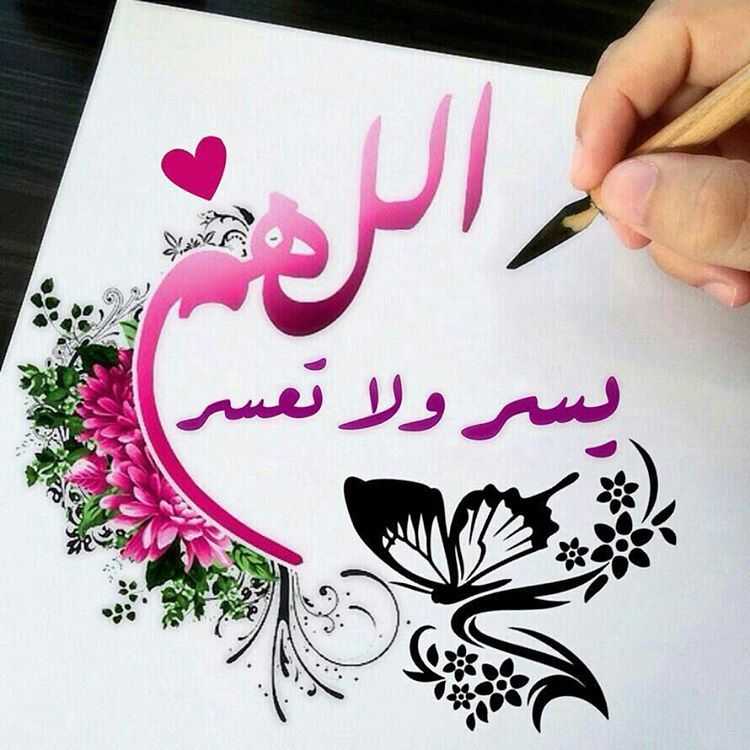 اللهم
يسر ولا تعسر